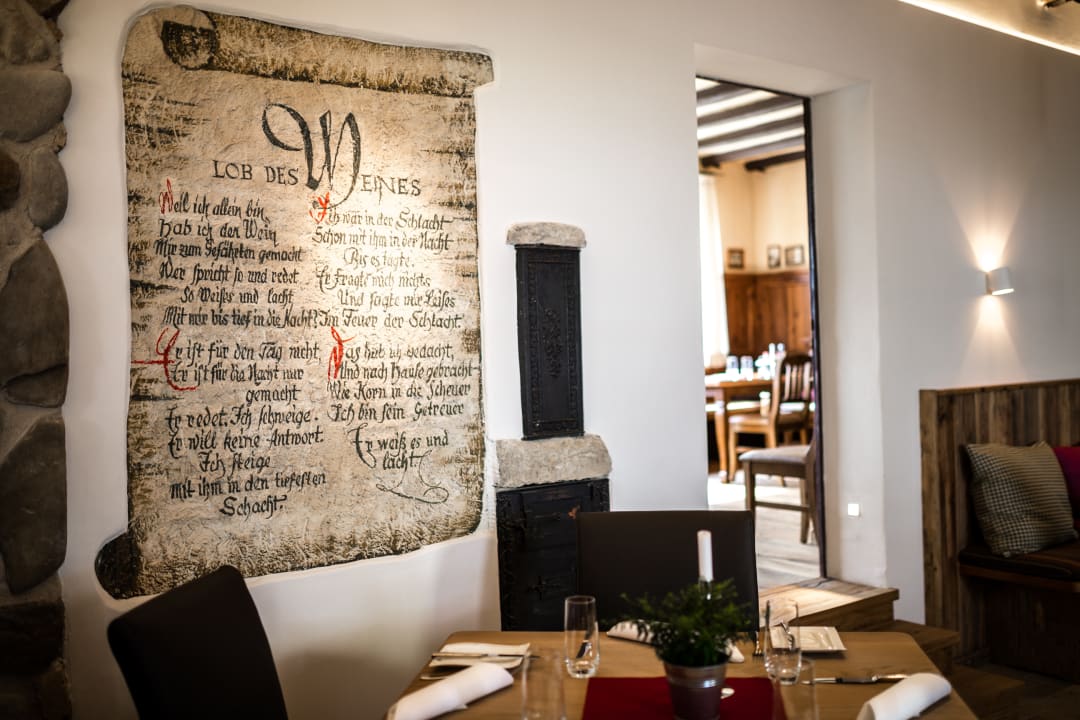 LOB DES WEINES
Weil ich allein bin,
Hab ich den Wein
Mir zum Gefährten gemacht
Wer spricht so und redet
So Weißes und lacht
Mit mir bis tief in die Nacht?
Er ist für den Tag nicht,
Er ist für die Nacht nur
gemacht
Er redet. Ich schweige.
Er will keine Antwort.
Ich steige
mit ihm in den tiefsten
Schacht.
Ich war in der Schlacht
Schon mit ihm in der Nacht
Bis es tagte.
Er fragte mich nichts
Und sagte mir Leises
Im Feuer der Schlacht.
Was hab ich gedacht,
Und nach Hause gebracht
Wie Korn in die Scheuer
Ich bin sein Getreuer
Er weiß es und
lacht.